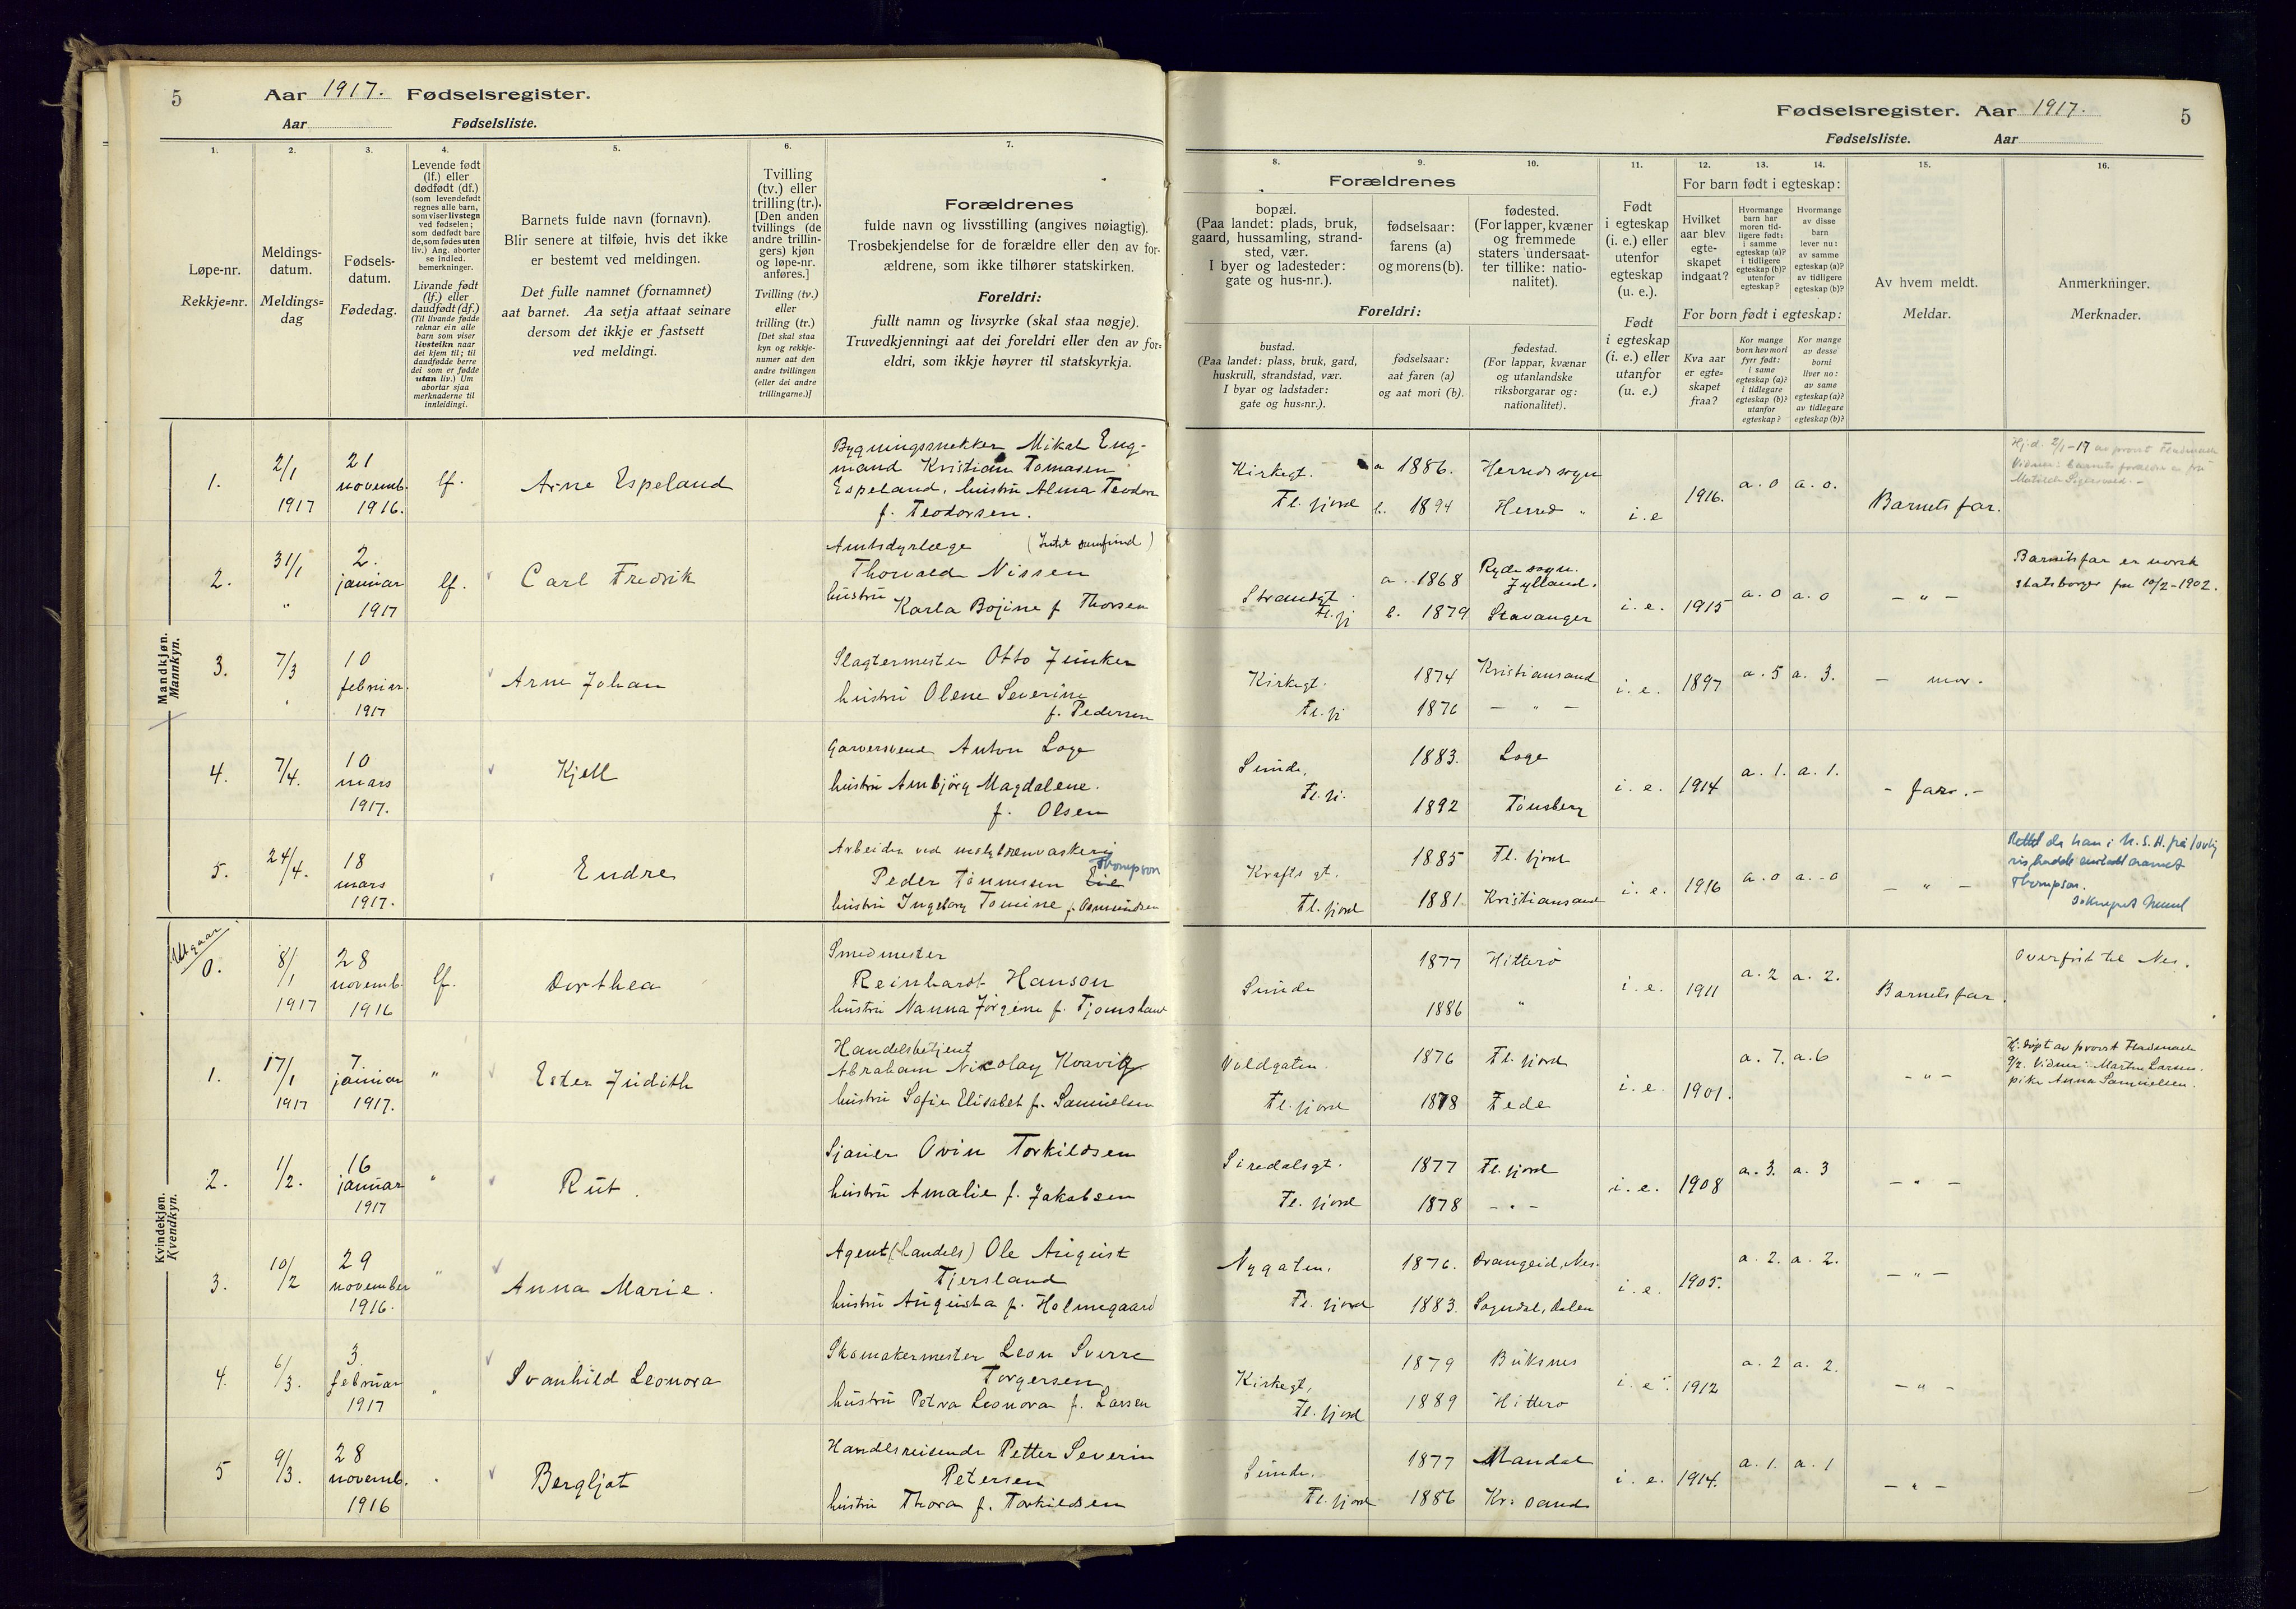 5
Aar 1917. Fødselsregister.
Aar Fødselsliste.
1.
2.
3.
4.
5.
6.
7.
Løpe-nr.
Rekkje=nr.
Meldings-
datum.
Meldings=
dag
Fødsels-
datum.
Fødedag.
Levende født
(lf.) eller
dødfødt (df.)
(som levendefødt
regnes alle barn,
som viser livstegn
ved fødselen;
som dødfødt bare
de, som fødes uten
liv.) Ang. aborter
se indled.
bemerkninger.
Livande født
(lf.) eller
daudfødt (df.)
(Til livande fødde
reknar ein alle
barn som viser
livsteikn naar
dei kjem til; til
daudfødde berre
dei som er fødde
utan liv.) Um
abortar sjaa
merknaderne til
innleidingi.
Barnets fulde navn (fornavn).
Blir senere at tilføie, hvis det ikke
er bestemt ved meldingen.
Det fulle namnet (fornamnet)
aat barnet. Aa setja attaat seinare
dersom det ikkje er fastsett
ved meldingi.
Tvilling
(tv.) eller
trilling (tr.).
[Den anden
tvillings (de
andre trillin-
gers) kjøn
og løpe-nr.
anføres.]
Tvilling (tv.)
eller
trilling (tr.)
[Det skal staa
kyn og rekkje-
numer aat den
andre tvillingen
(eller dei andre
trillingarne.)]
Forældrenes
fulde navn og livsstilling (angives nøiagtig).
Trosbekjendelse for de forældre eller den av for-
ældrene, som ikke tilhører statskirken.
Foreldri:
fullt namn og livsyrke (skal staa nøgje).
Truvedkjenningi aat dei foreldri eller den av for=
eldri, som ikkje høyrer til statskyrkja.
Mandkjøn.
Mannkyn.
1.
2/1
1917
21
novemb.
1916.
lf.
Arne Espeland
Bygningssnekker Mikal Eng-
mand Kristian Tomasen
Espeland, hustru Alma Teodora
f. Teodorsen.
2.
31/1
"
2.
januar
1917
lf.
Carl Fredrik
Amtsdyrlæge
Thorvald Nissen
hustru
Karla Bojine f Thorsen
3.
7/3
10
februar.
1917
Arne Johan
Slagtermester Otto Junker
hustru Olene Severine
f. Pedersen
4.
7/4.
10
mars
1917.
Kjell
Garversvend Anton Loge
hustru Ambjörg Magdalene.
f. Olsen
5.
24/4.
18
mars
1917.
Endre
Arbeider ved molybdenvaskeri
Thompson
Peder Tönnesen Lie
hustru Ingeborg Tomine f. Osmundsen
Kvindekjøn.
Kvendkyn.
Utgaar
0.
8/1
1917
28
novemb.
1916
lf.
Dorthea
Smedmester
Reinhardt Hanson
hustru Nanna Jörgine f. Tjomsland
1.
17/1
1917
7.
januar
1917.
"
Ester Judith
Handelsbetjent
Abraham Nicolay Kvavig
hustru Sofie Elisabet f. Samuelsen
2.
1/2.
16
januar
1917
"
Rut.
Sjauer Ovin Torkildsen
hustru Amalie f. Jakobsen
3.
10/2
29
november
1916.
"
Anna Marie.
Agent (handels) Ole August
Tjersland
hustru Augusta f. Holmegaard
4.
6/3.
3.
februar
1917
"
Svanhild Leonora
Skomakermester Leon Sverre
Torgersen
hustru Petra Leonora f. Larsen
5
9/3.
28
novemb.
1916
"
Bergljot
Handelsreisende Petter Severin
Petersen
hustru Thora f. Torkildsen
Fødselsregister. Aar 1917.
5
Fødselsliste. Aar
8.
9.
10.
11.
12.
13.
14.
15.
16.
Forældrenes
bopæl.
(Paa landet: plads, bruk,
gaard, hussamling, strand-
sted, vær.
I byer og ladesteder:
gate og hus-nr.).
fødselsaar:
farens (a)
og morens (b).
fødested.
(For lapper, kvæner
og fremmede
staters undersaat-
ter tillike: natio-
nalitet).
Foreldri:
bustad.
(Paa landet: plass, bruk, gard,
huskrull, strandstad, vær.
I byar og ladstader:
gate og hus=nr.).
fødselsaar:
aat faren (a)
og aat mori (b).
fødestad.
(For lappar, kvænar
og utanlandske
riksborgarar og:
nationalitet).
Født
i egteskap
(i. e.) eller
utenfor
egteskap
(u. e.).
Født
i egteskap
(i. e.) eller
utanfor
(u. e.)
For barn født i egteskap:
Hvilket
aar blev
egte-
skapet
indgaat?
Hvormange
barn har
moren tid-
ligere født:
i samme
egteskap (a)?
i tidligere
egteskap (b)?
utenfor
egteskap?
Hvormange
av disse
barn
lever nu:
av samme
egteskap (a)?
av tidligere
egteskap (b)?
For born født i egteskap:
Kva aar
er egte=
skapet
fraa?
Kor mange
born hev mori
fyrr født:
i same
egteskap (a)?
i tidlegare
egteskap (b)?
utanfor
egteskap?
Kor mange
av desse
borni
liver no:
av same
egteskap (a)?
av tidlegare
egteskap (b)?
Av hvem meldt.
Meldar.
Anmerkninger.
Merknader.
Kirkegt.
Fl. fjord
a 1886.
b. 1894
Herred sogn
Herred "
i. e
1916.
a. 0
a. 0.
Barnets far.
Strandgt.
Fl. fj
a. 1868
b. 1879
Ryde sogn.
Jylland.
Stavanger
i. e.
1915
a. 0
a. 0
- " -
Barnets far er norsk
statsborger fra 10/2-1902.
Kirkegt.
Fl. fj
1874
1876
Kristiansand
- " -
i. e.
1897
a. 5
a. 3.
- mor.
Sunde,
Fl. fj.
1883.
1892
Loge
Tönsberg
i. e.
1914
a. 1.
a. 1.
- far. -
Krafts gt.
Fl. fjord
1885
1881
Fl. fjord
Kristiansand
i. e.
1916
a. 0
a. -0
- " -
Rettet da han i U.S.A. på lovlig
vis hadde antatt navnet
Thompson.
Sunde
1877
1886
Hitterö
"
i. e.
1911
a. 2
a. 2.
Barnets far.
Overfört til Nes.
Voldgaten.
Fl. fjord
1876
1878
Fl. fjord
Fede
i. e.
1901.
a. 7.
a. 6
- " -
H. döpt av provst Fladmark
9/2. Vidner: Martin Larsen.
pike Anna Samuelsen.
Siredalsgt.
Fl. fjord
1877
1878
Fl. fjord
- " -
i. e.
1908
a. 3.
a. 3
- " -
Nygaten.
Fl. fjord
1876.
1883.
Drangeid, Nes.
Sogndal, Dalen
i. e.
1905.
a. 2.
a. 2.
- " -
Kirkegt,
Fl. fjord
1879
1889
Buksnes
Hitterö
i. e.
1912
a. 2
a. 2.
- " -
Sunde.
Fl. fjord
1877
1886
Mandal
Kr: sand
i. e.
1914.
a. 1.
a. 1
- " -